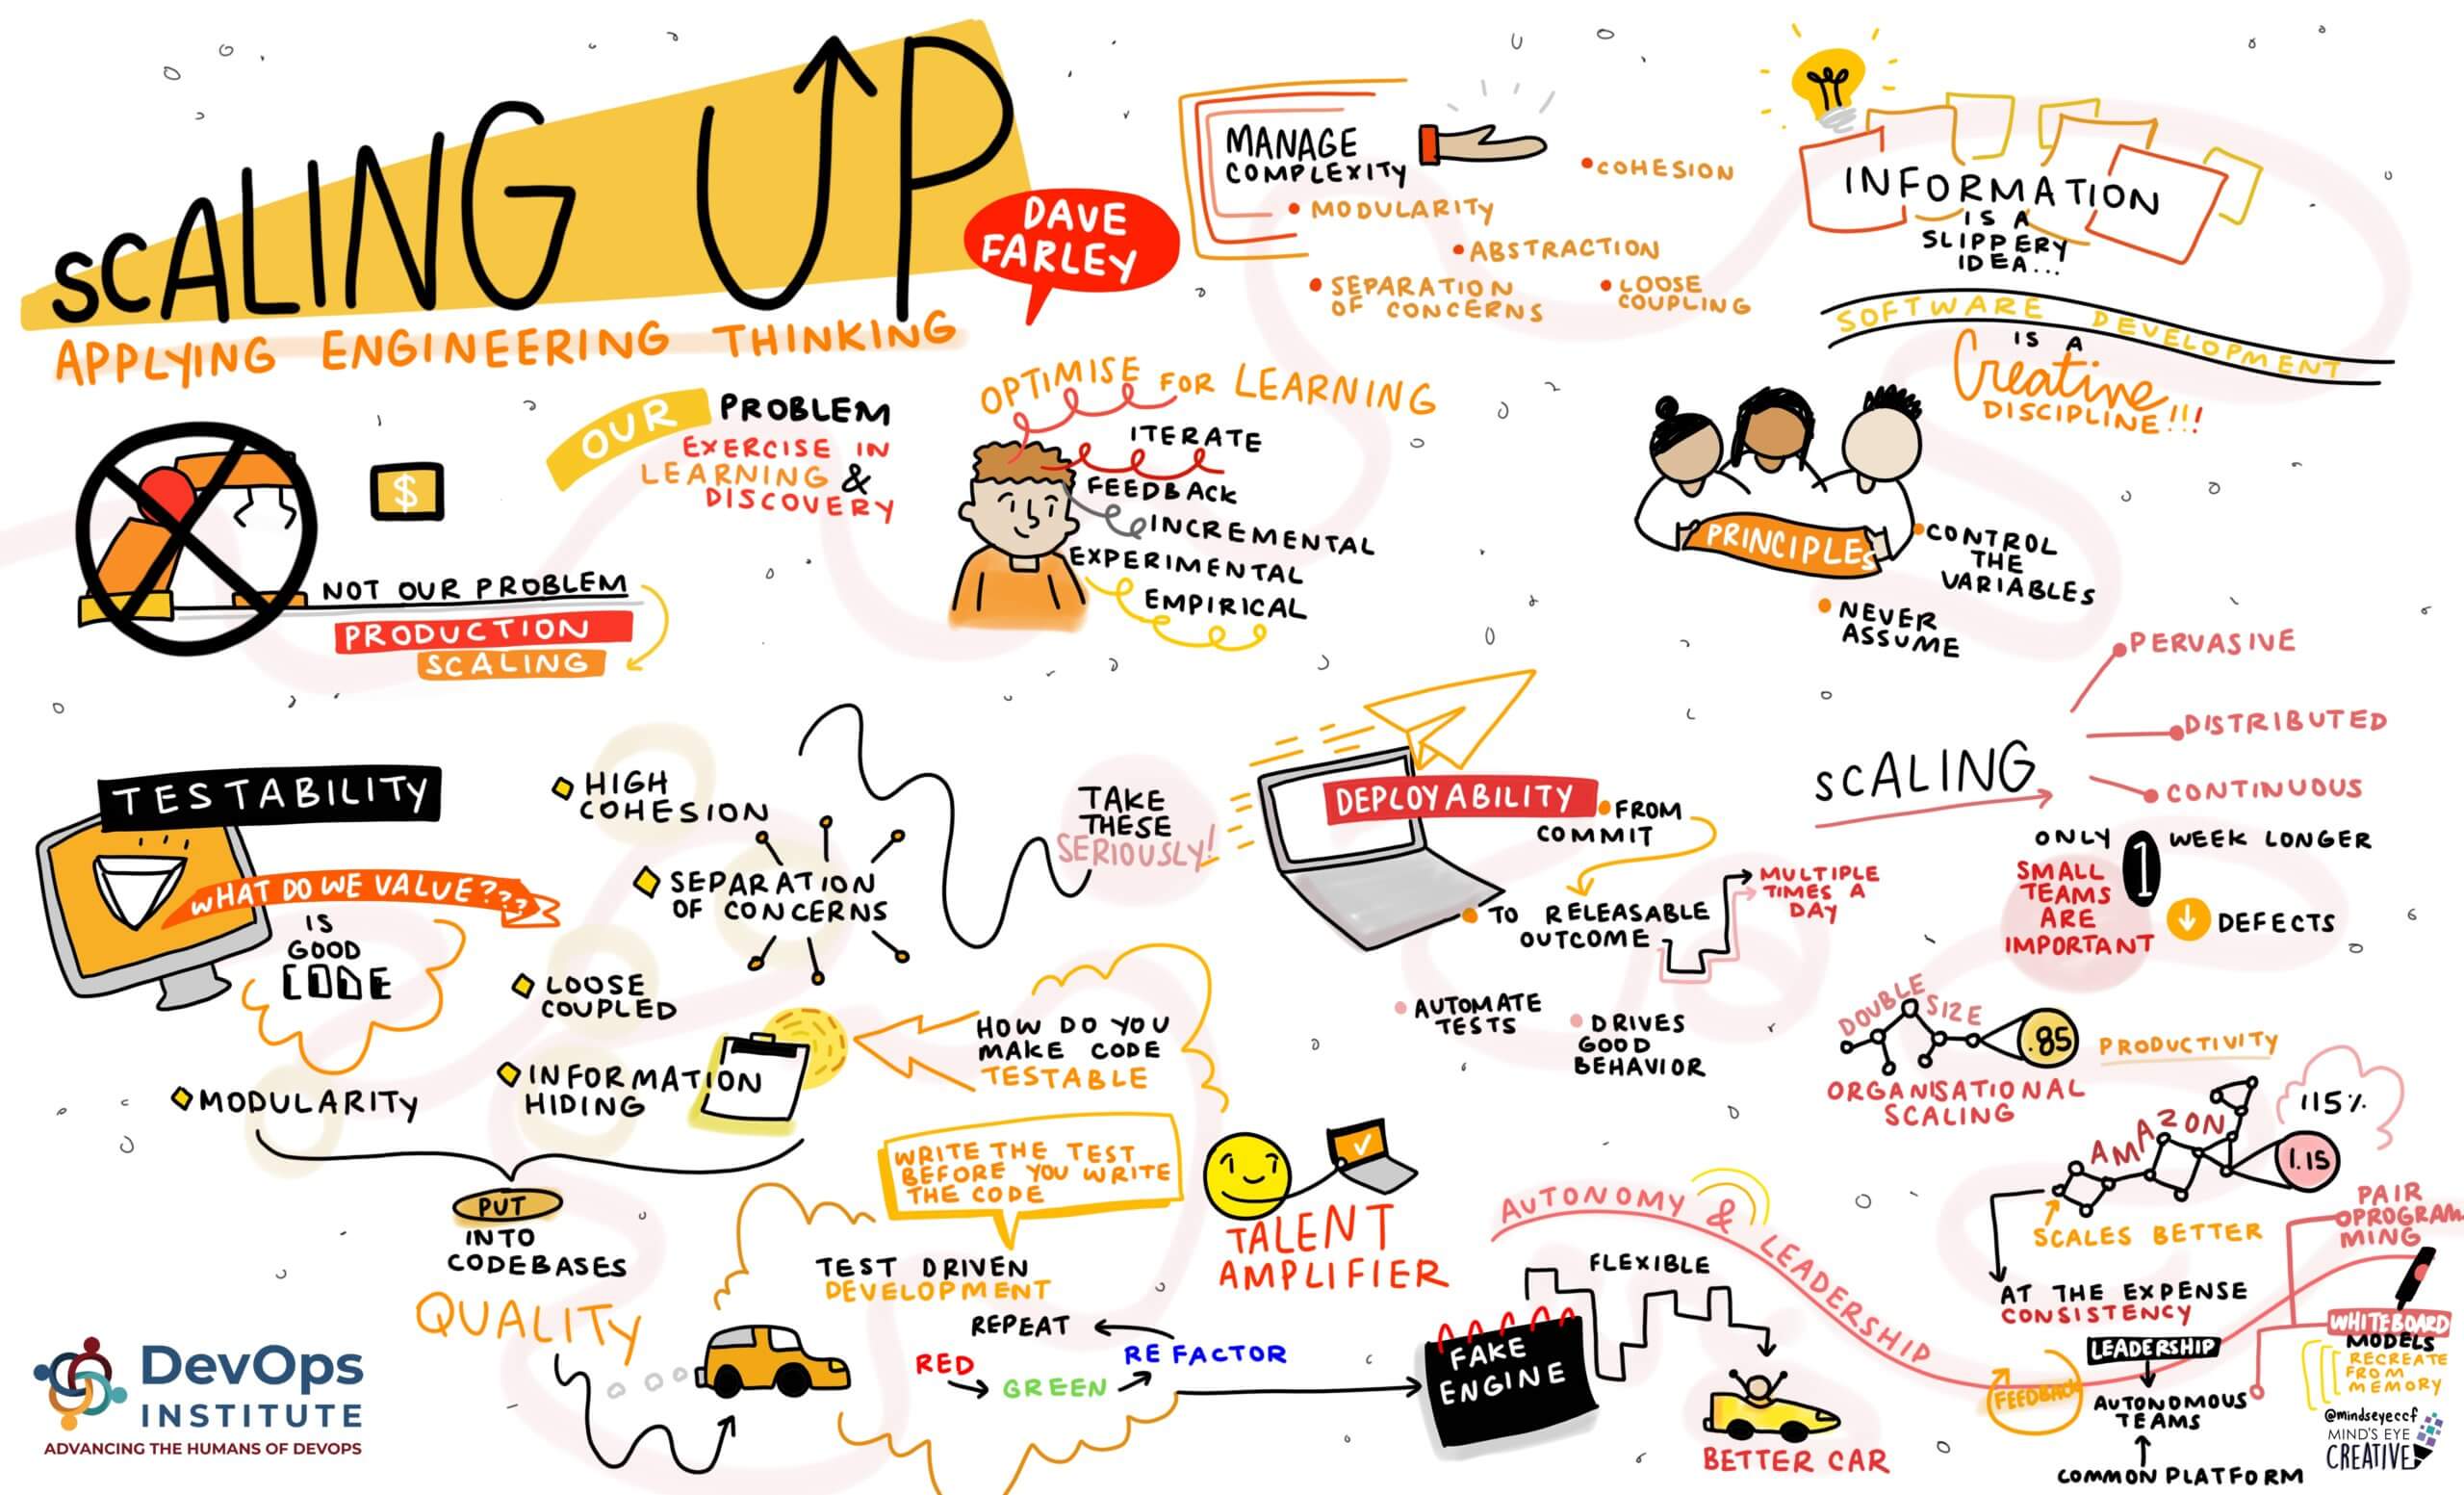 SCALING UP
APPLYING ENGINEERING THINKING
DAVE
FARLEY
MANAGE
COMPLEXITY
• COHESION
• MODULARITY
• ABSTRACTION
• SEPARATION
OF CONCERNS
• LOOSE
COUPLING
INFORMATION
IS A
SLIPPERY
IDEA...
SOFTWARE DEVELOPMENT
IS A
Creative
DISCIPLINE!!!
$
NOT OUR PROBLEM
PRODUCTION
SCALING
OUR PROBLEM
EXERCISE IN
LEARNING &
DISCOVERY
OPTIMISE FOR LEARNING
ITERATE
FEEDBACK
INCREMENTAL
EXPERIMENTAL
EMPIRICAL
PRINCIPLES
• CONTROL
THE
VARIABLES
• NEVER
ASSUME
TESTABILITY
WHAT DO WE VALUE????
IS
GOOD
CODE
HIGH
COHESION
SEPARATION
OF CONCERNS
LOOSE
COUPLED
INFORMATION
HIDING
MODULARITY
PUT
INTO
CODEBASES
QUALITY
TAKE
THESE
SERIOUSLY!
HOW DO YOU
MAKE CODE
TESTABLE
WRITE THE TEST
BEFORE YOU WRITE
THE CODE
TEST DRIVEN
DEVELOPMENT
REPEAT
RED
GREEN
REFACTOR
TALENT
AMPLIFIER
DEPLOYABILITY
• FROM
COMMIT
• TO RELEASABLE
OUTCOME
MULTIPLE
TIMES A
DAY
• AUTOMATE
TESTS
• DRIVES
GOOD
BEHAVIOR
SCALING
PERVASIVE
DISTRIBUTED
CONTINUOUS
ONLY 1 WEEK LONGER
SMALL
TEAMS
ARE
IMPORTANT
↓ DEFECTS
DOUBLE SIZE
.85
PRODUCTIVITY
ORGANISATIONAL
SCALING
AMAZON
115%
1.15
SCALES BETTER
AT THE EXPENSE
CONSISTENCY
PAIR
PROGRAM
MING
WHITEBOARD
MODELS
RECREATE
FROM
MEMORY
AUTONOMY & LEADERSHIP
FLEXIBLE
FAKE
ENGINE
BETTER CAR
FEEDBACK
LEADERSHIP
AUTONOMOUS
TEAMS
COMMON PLATFORM
DevOps
INSTITUTE
ADVANCING THE HUMANS OF DEVOPS
@mindseyeccf
MIND'S EYE
CREATIVE